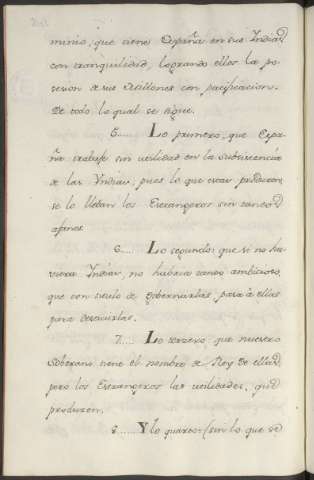 minio, que tiene España en sus Indias
con tranquilidad, logrando ellos la po-
sesion de sus Casillones con pacificacion.
De todo lo qual se sigue.
5..... Lo primero, que Espa-
ña trabaje sin utilidad en la Subsistencia
de las Yndias, pues lo que estas producen
se lo llevan los Estrangeros sin tantos
afanes
6..... Lo segundo: que si no hu-
viera Yndias, no habria tantos ambiciosos,
que con titulo de Governarlas, pasan á ellas
para destruirlas.
7..... Lo tercero, que nuestro
Soberano tiene el nombre de Rey de ellas,
pero los Estrangeros las utilidades, que
producen.
8...... Y lo quarto: (sin lo que se